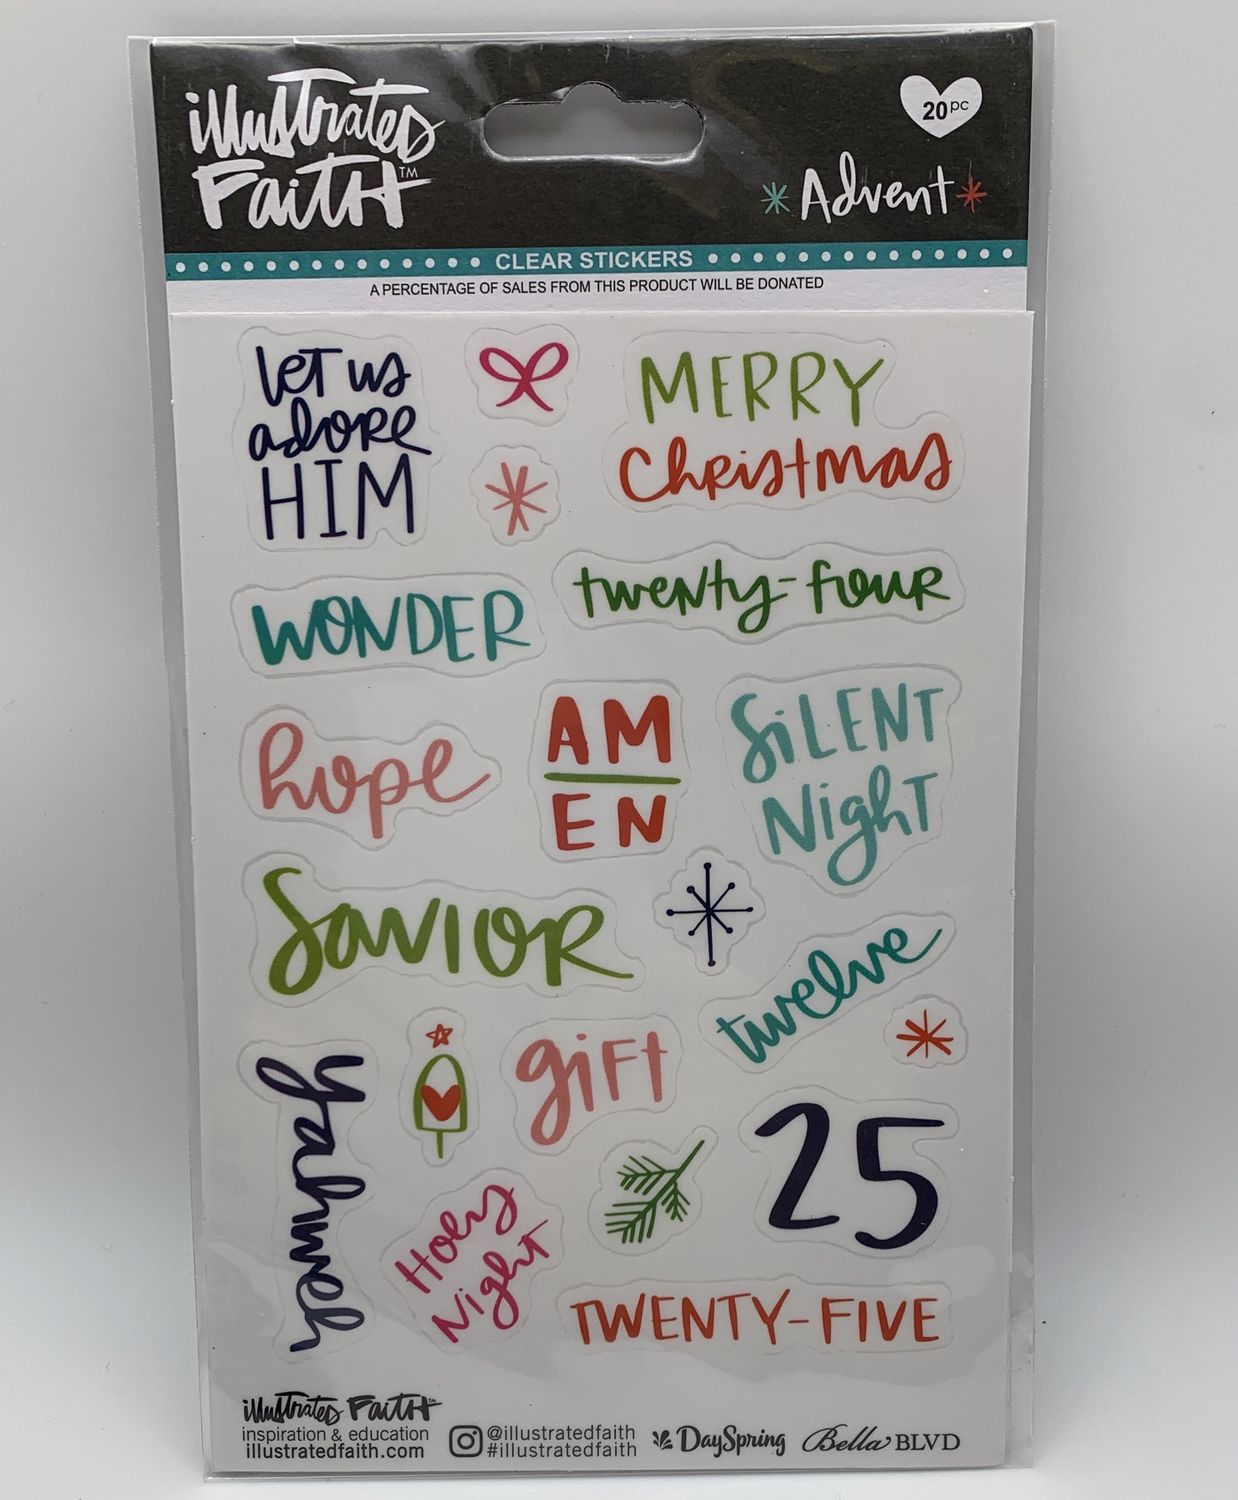 illustrated
Faith™
20pc
Advent
CLEAR STICKERS
A PERCENTAGE OF SALES FROM THIS PRODUCT WILL BE DONATED
let us
adore
HIM
MERRY
Christmas
WONDER
twenty-four
hope
AM
EN
SiLENT
Night
Savior
twelve
yahweh
gift
25
Holy
Night
TWENTY-FIVE
illustrated Faith™
inspiration & education
illustratedfaith.com
@illustratedfaith
#illustratedfaith
DaySpring
Bella BLVD